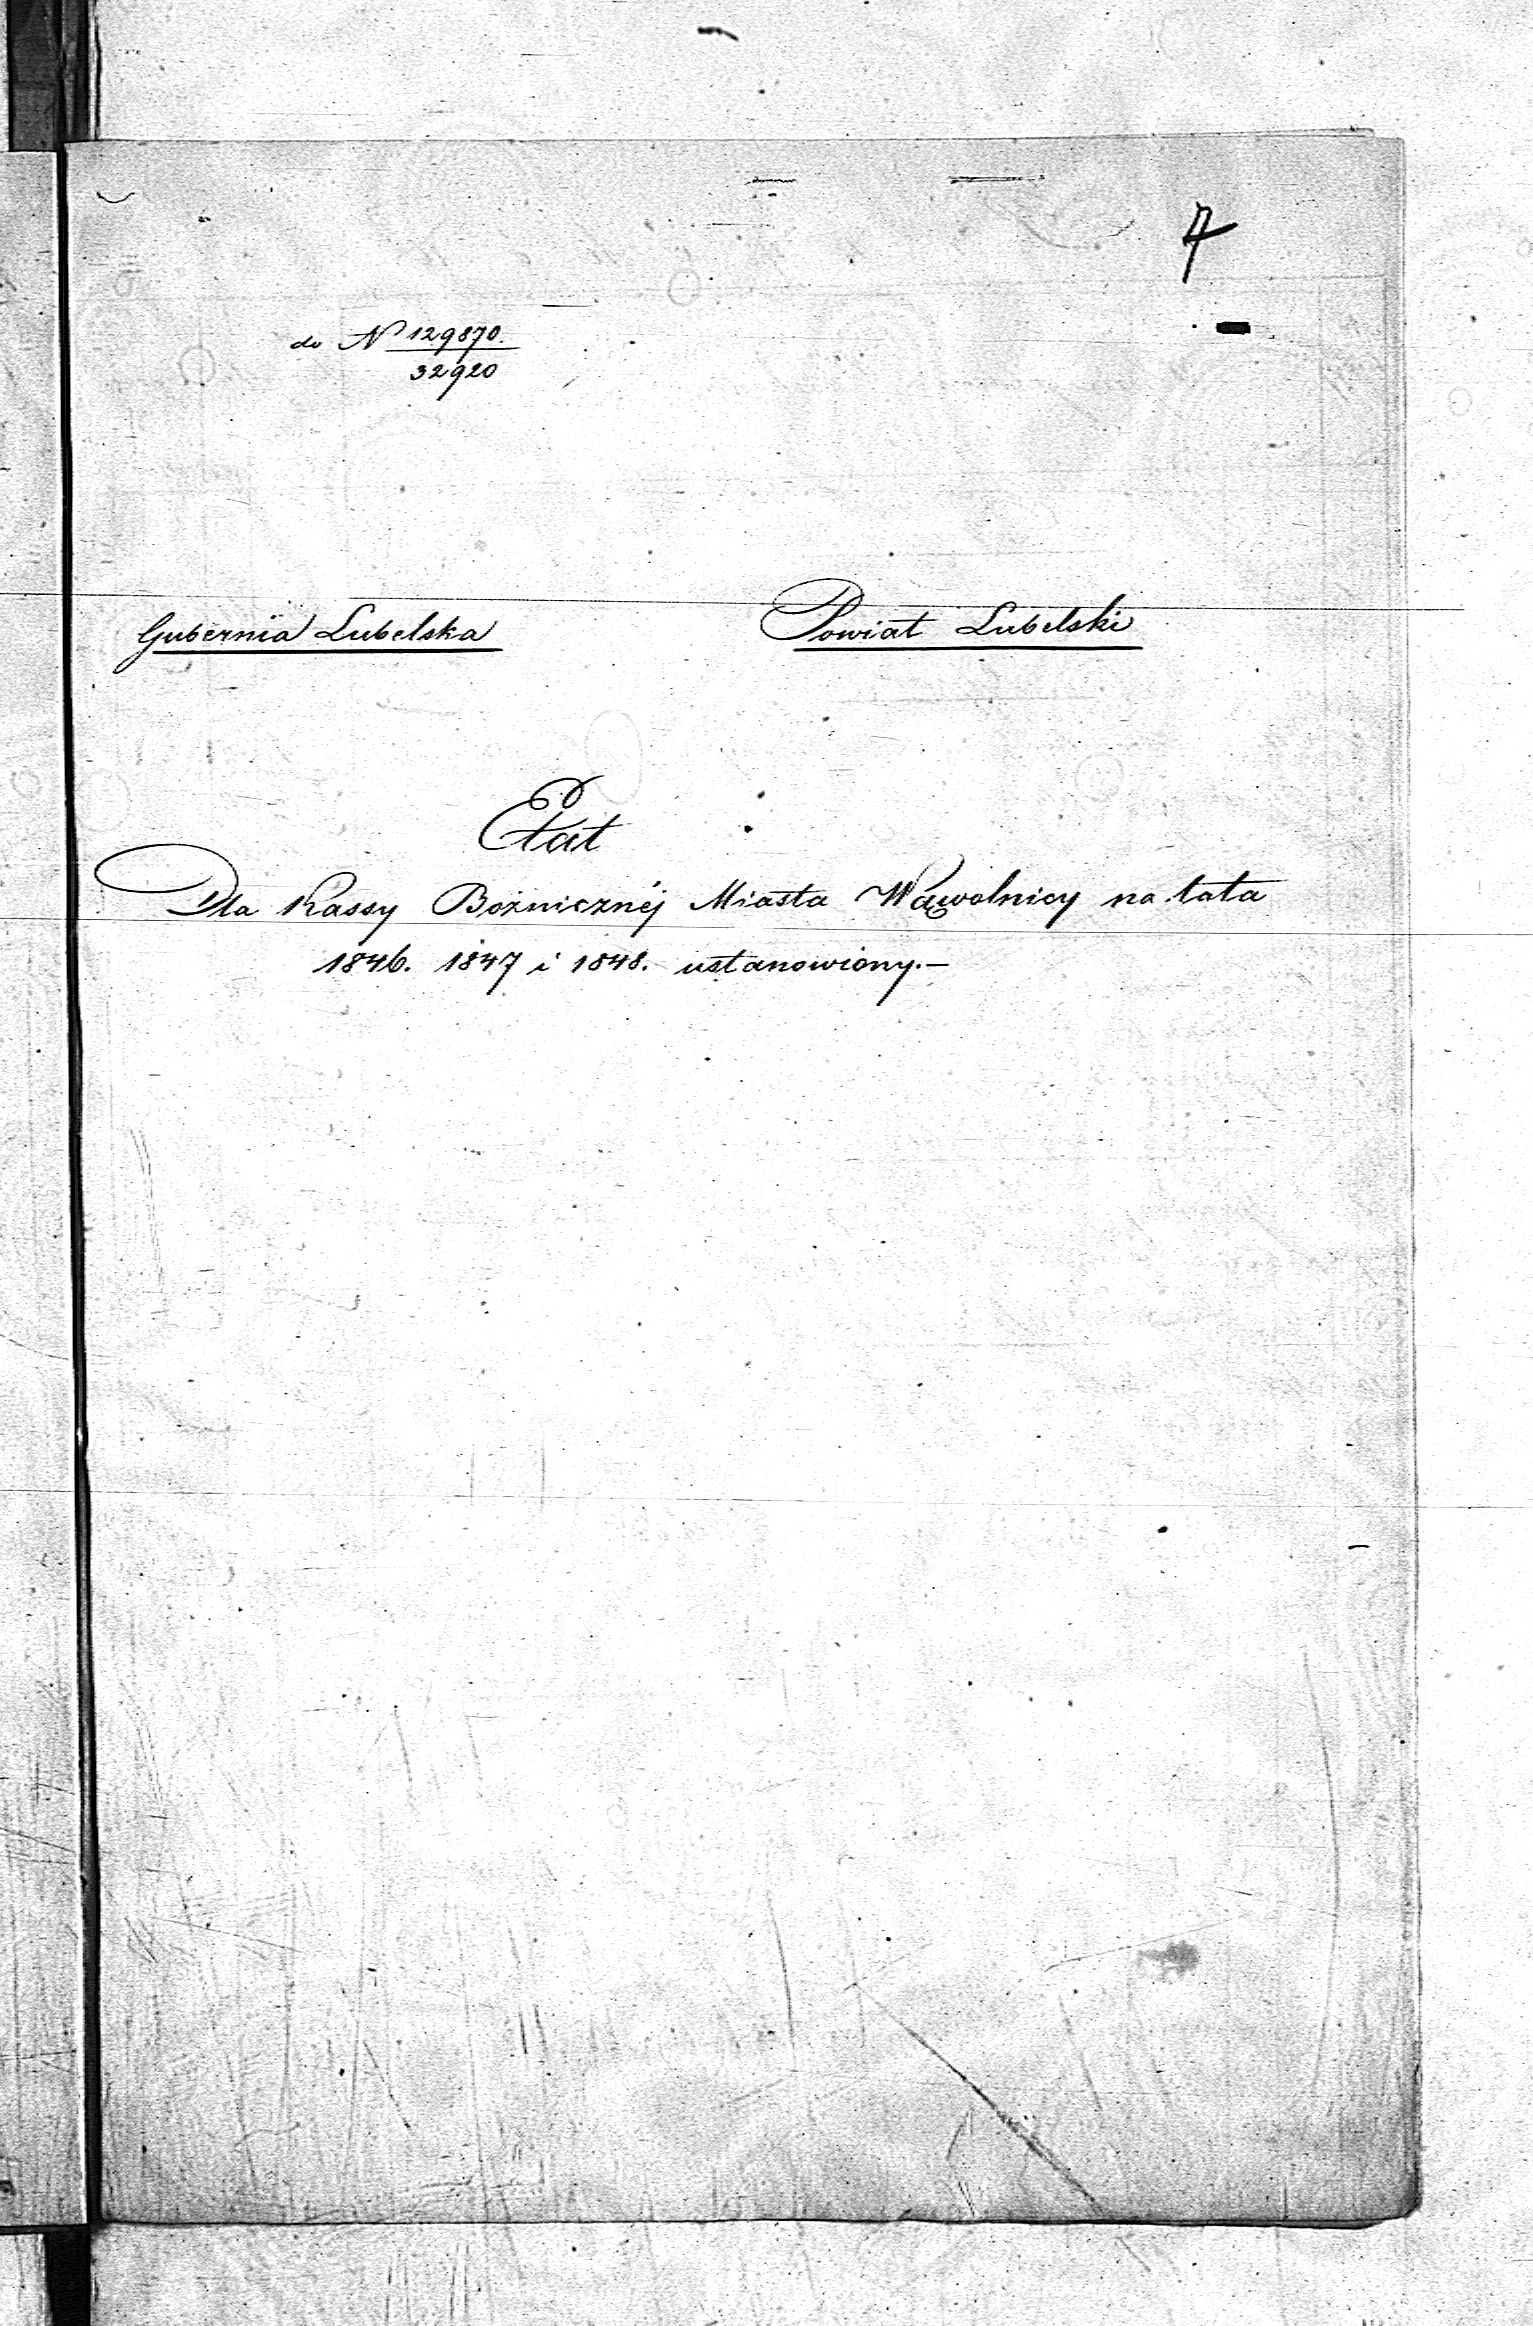 7
do N 129870.
32920
Gubernia Lubelska Powiat Lubelski
Etat
Dla Kassy Bożnicznéj Miasta Wąwolnicy na lata
1846. 1847 i 1848. ustanowiony.—